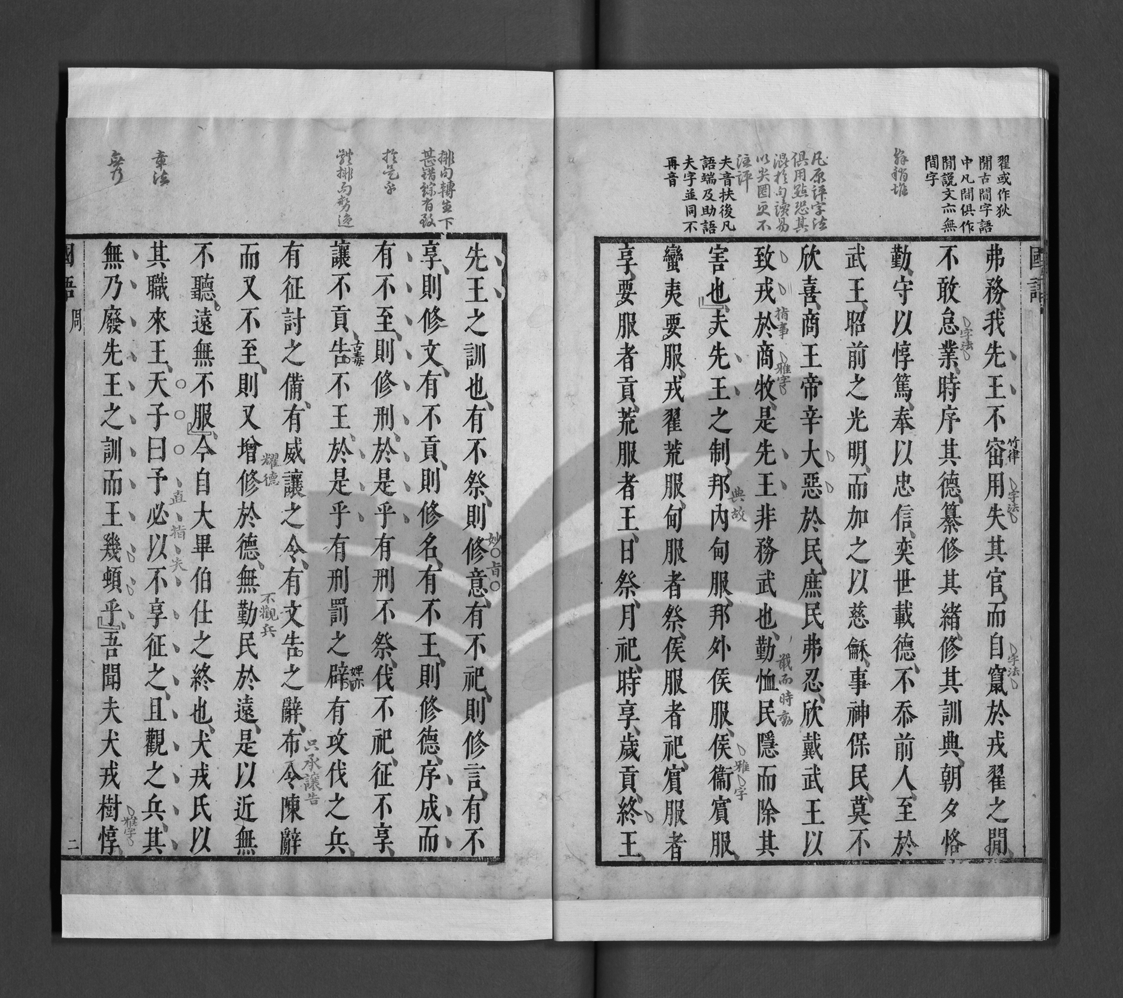 國語
翟或作狄
閒古間字語
中凡間俱作
閒說文亦無
間字
凡原評字法
俱用㸃恐其
混於句讀易
以尖圈更不
注評
夫音扶後凡
語端及助語
夫字並同不
再音
弗務我先王不窋用失其官而自竄於戎翟之閒
竹律
字法
字法
不敢怠業時序其德纂修其緒修其訓典朝夕恪
字法
勤守以惇篤奉以忠信奕世載德不忝前人至於
武王昭前之光明而加之以慈龢事神保民莫不
欣喜商王帝辛大惡於民庶民弗忍欣戴武王以
致戎於商牧是先王非務武也勤恤民隱而除其
指事
雅字
戢而時動
害也夫先王之制邦內甸服邦外侯服侯衞賓服
典故
雅字
蠻夷要服戎翟荒服甸服者祭侯服者祀賓服者
享要服者貢荒服者王日祭月祀時享歲貢終王
排句轉苙下
甚錯綜有致
章法
先王之訓也有不祭則修意有不祀則修言有不
享則修文有不貢則修名有不王則修德序成而
有不至則修刑於是乎有刑不祭伐不祀征不享
讓不貢告不王於是乎有刑罰之辟有攻伐之兵
古毒
婢亦
有征討之備有威讓之令有文告之辭布令陳辭
只承讓告
而又不至則又增修於德無勤民於遠是以近無
耀德
不觀兵
不聽遠無不服今自大畢伯仕之終也犬戎氏以
其職來王天子曰予必以不享征之且觀之兵其
直指失
無乃廢先王之訓而王幾頓乎吾聞夫犬戎樹惇
雅字
國語
周
二